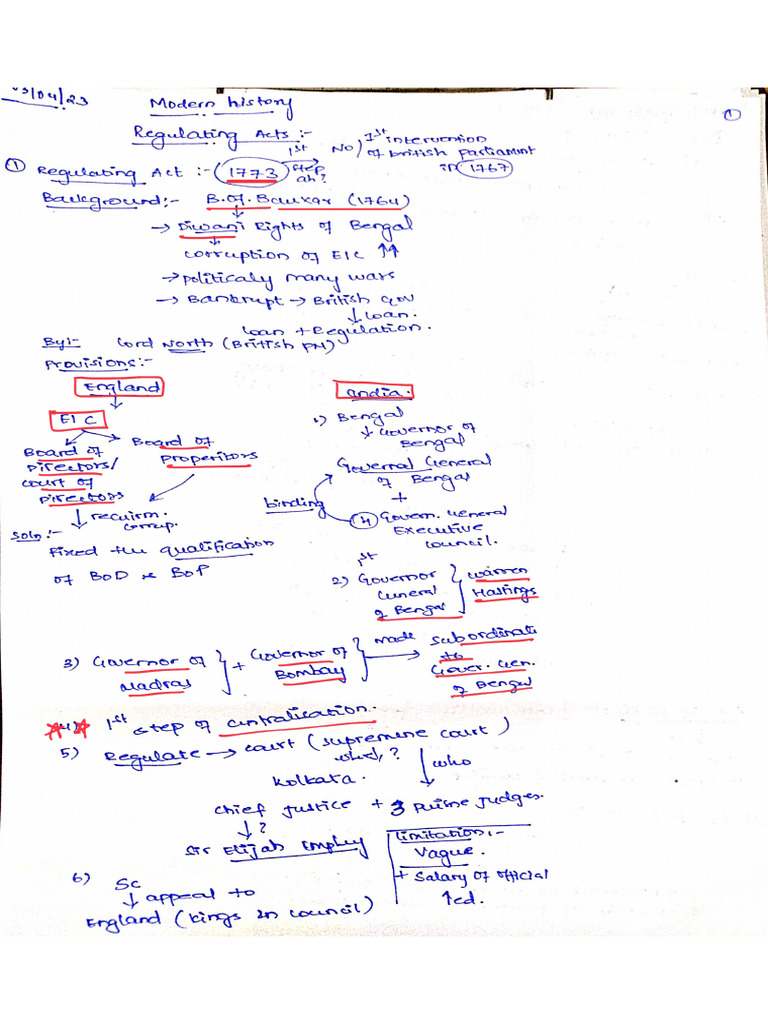 03/04/23
Modern history
①
Regulating Acts :-
① Regulating Act :- 1773 1st step ah? No, 1st intervention of british parliament in 1767
Background:- B.of.Bauxar (1764)
→ Diwani Rights of Bengal
corruption of EIC ↑↑
→ politicaly many wars
→ Bankrupt → British Gov
↓ Loan.
Loan + Regulation.
By:- Lord North (British PM)
Provisions:-
England
India.
EIC
Board of Directors/ court of Directors
Board of Properitors
↓ recuirm. corrup.
Soln:-
Fixed the qualification
of BOD & BOP
1) Bengal
↓ Governor of Bengal
Governal General of Bengal
+
binding
④ Govern. General Executive council.
1st
2) Governor General of Bengal } Warren Hastings
3) Governor of Madras } + Governor of Bombay } made → Subordinate to Gover. Gen. of Bengal
4) 1st step of centralisation.
5) Regulate → court (supreme court)
which, ?
↓ who
Kolkata.
chief Justice + 3 Puine judges.
↓ ?
Sir Elijah Empley
Limitation:-
Vague.
+ Salary of official
↑ed.
6) SC
↓ appeal to
England (kings in council)